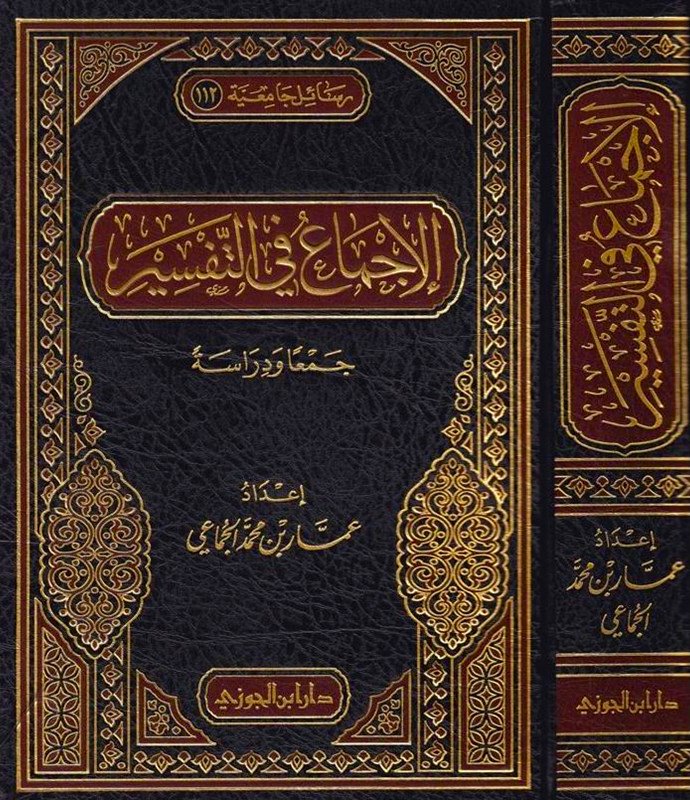 رسائل جامعية ١١٢
الإجماع في التفسير
جمعًا ودراسةً
إعداد
عمار بن محمد الجماعي
دار ابن الجوزي
الإجماع في التفسير
إعداد
عمار بن محمد
الجماعي
دار ابن الجوزي